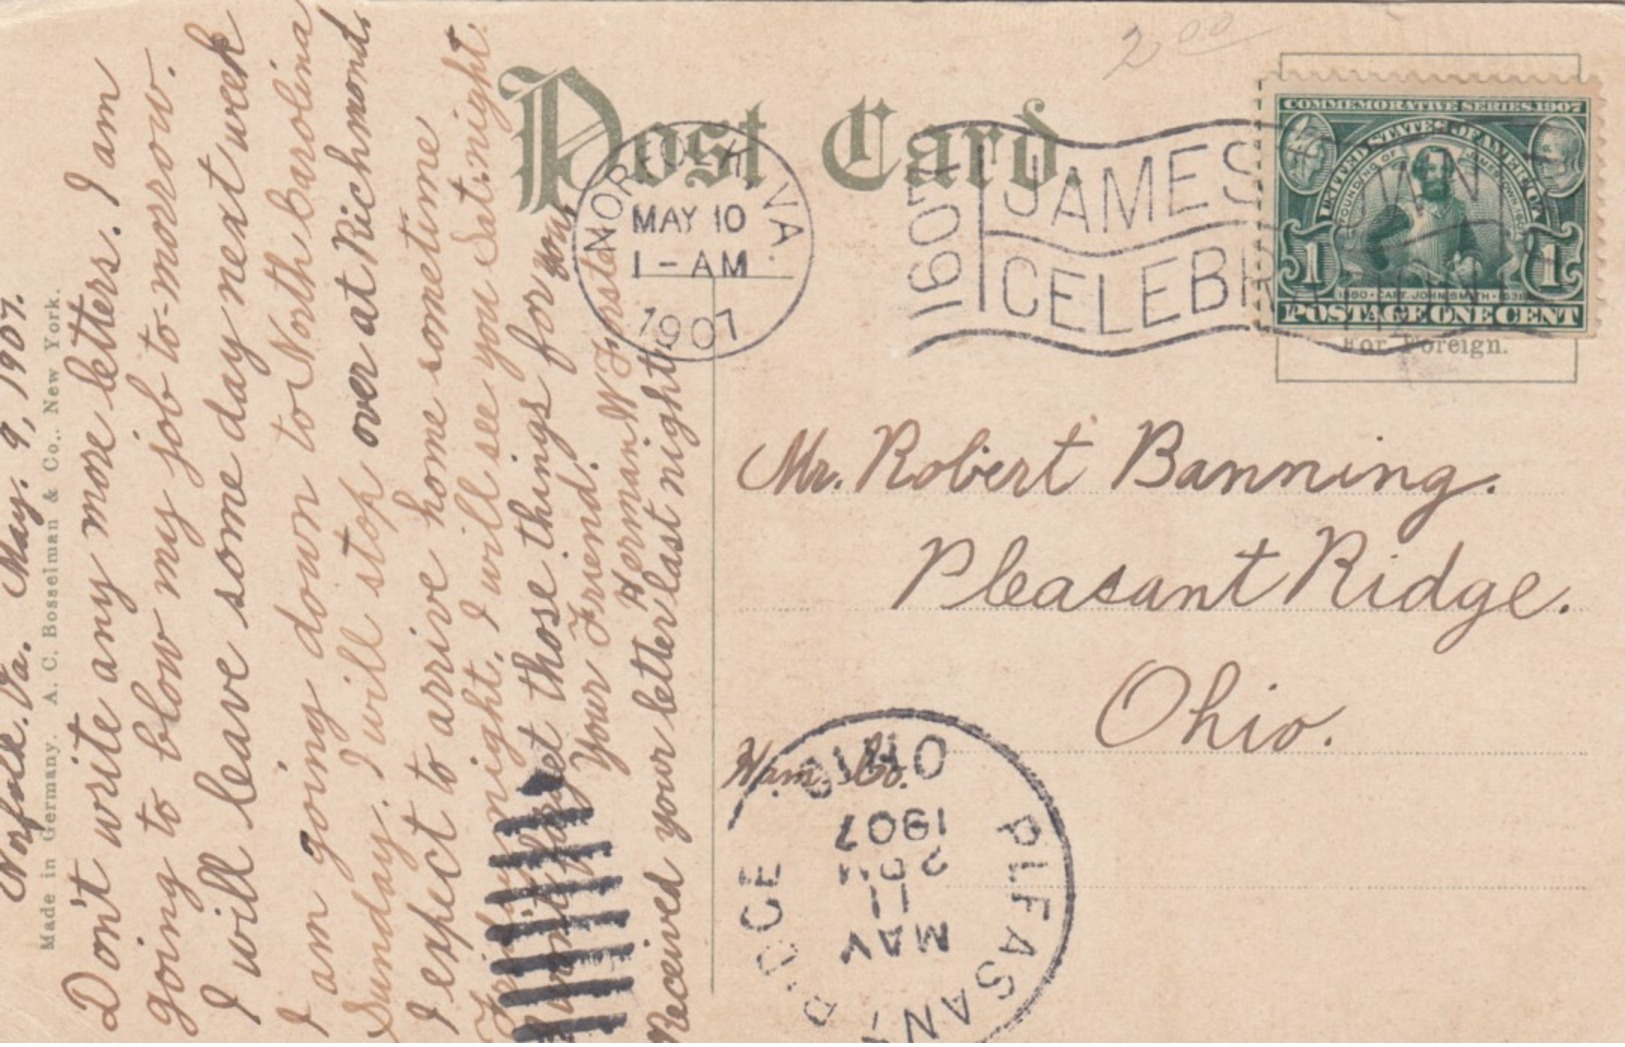 Norfolk. Va. May. 9, 1907.
Made in Germany. A. C. Bosselman & Co., New York.
Don't write any more letters. I am
going to blow my job to-morrow.
I will leave some day next week
I am going down to North Carolina
Sunday. I will stop over at Richmond.
I expect to arrive home sometime
Friday night, I will see you Sat. night.
those things for you
Your Friend.
Herman W.
Received your letter last night
Post Card
2 00
NORFOLK, VA.
MAY 10
1-AM
1907
1907
JAMESTOWN
CELEBR
COMMEMORATIVE SERIES 1907
UNITED STATES OF AMERICA
FOUNDING OF JAMESTOWN 1607
1 1
1580 · CAPT. JOHN SMITH · 1631
POSTAGE ONE CENT
For Foreign.
Mr. Robert Banning.
Pleasant Ridge.
Ohio.
Ham. Co.
PLEASANT RIDGE
OHIO
MAY
11
2PM
1907